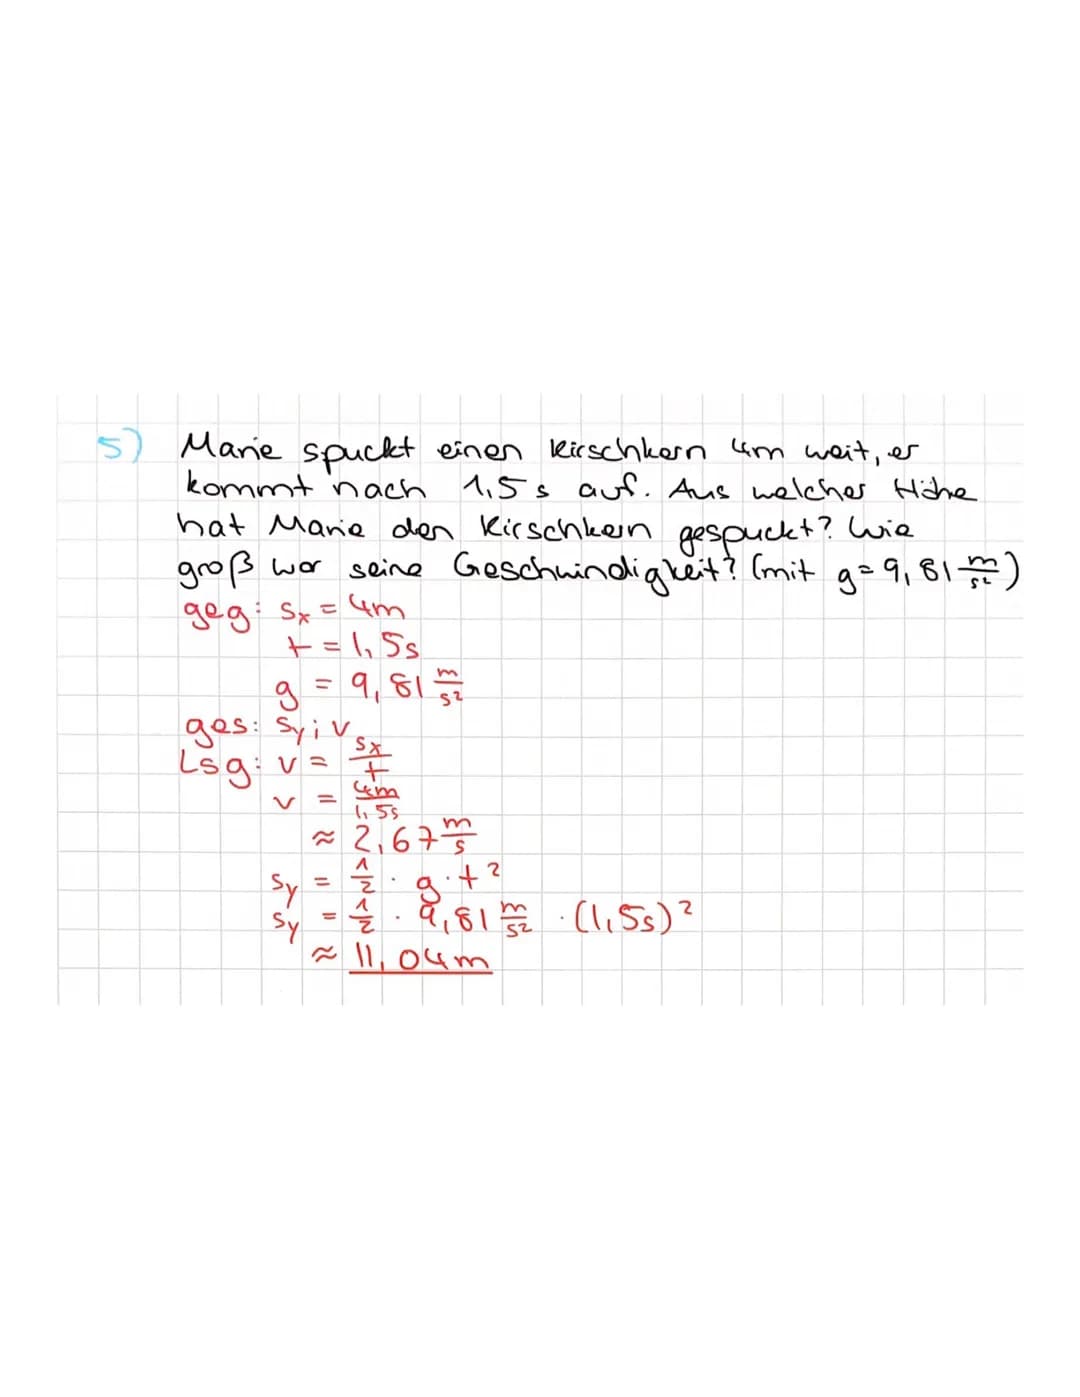 5) Marie spuckt einen Kirschkern 4m weit, er
kommt nach 1,5 s auf. Aus welcher Höhe
hat Marie den Kirschkern gespuckt? Wie
groß war seine Geschwindigkeit? (mit g = 9,81 m/s²)
geg: Sx = 4m
t = 1,5s
g = 9,81 m/s²
ges: Sy; v
Lsg: v = Sx/t
v = 4m/1,5s
≈ 2,67 m/s
Sy = 1/2 · g · t²
Sy = 1/2 · 9,81 m/s² · (1,5s)²
≈ 11,04m